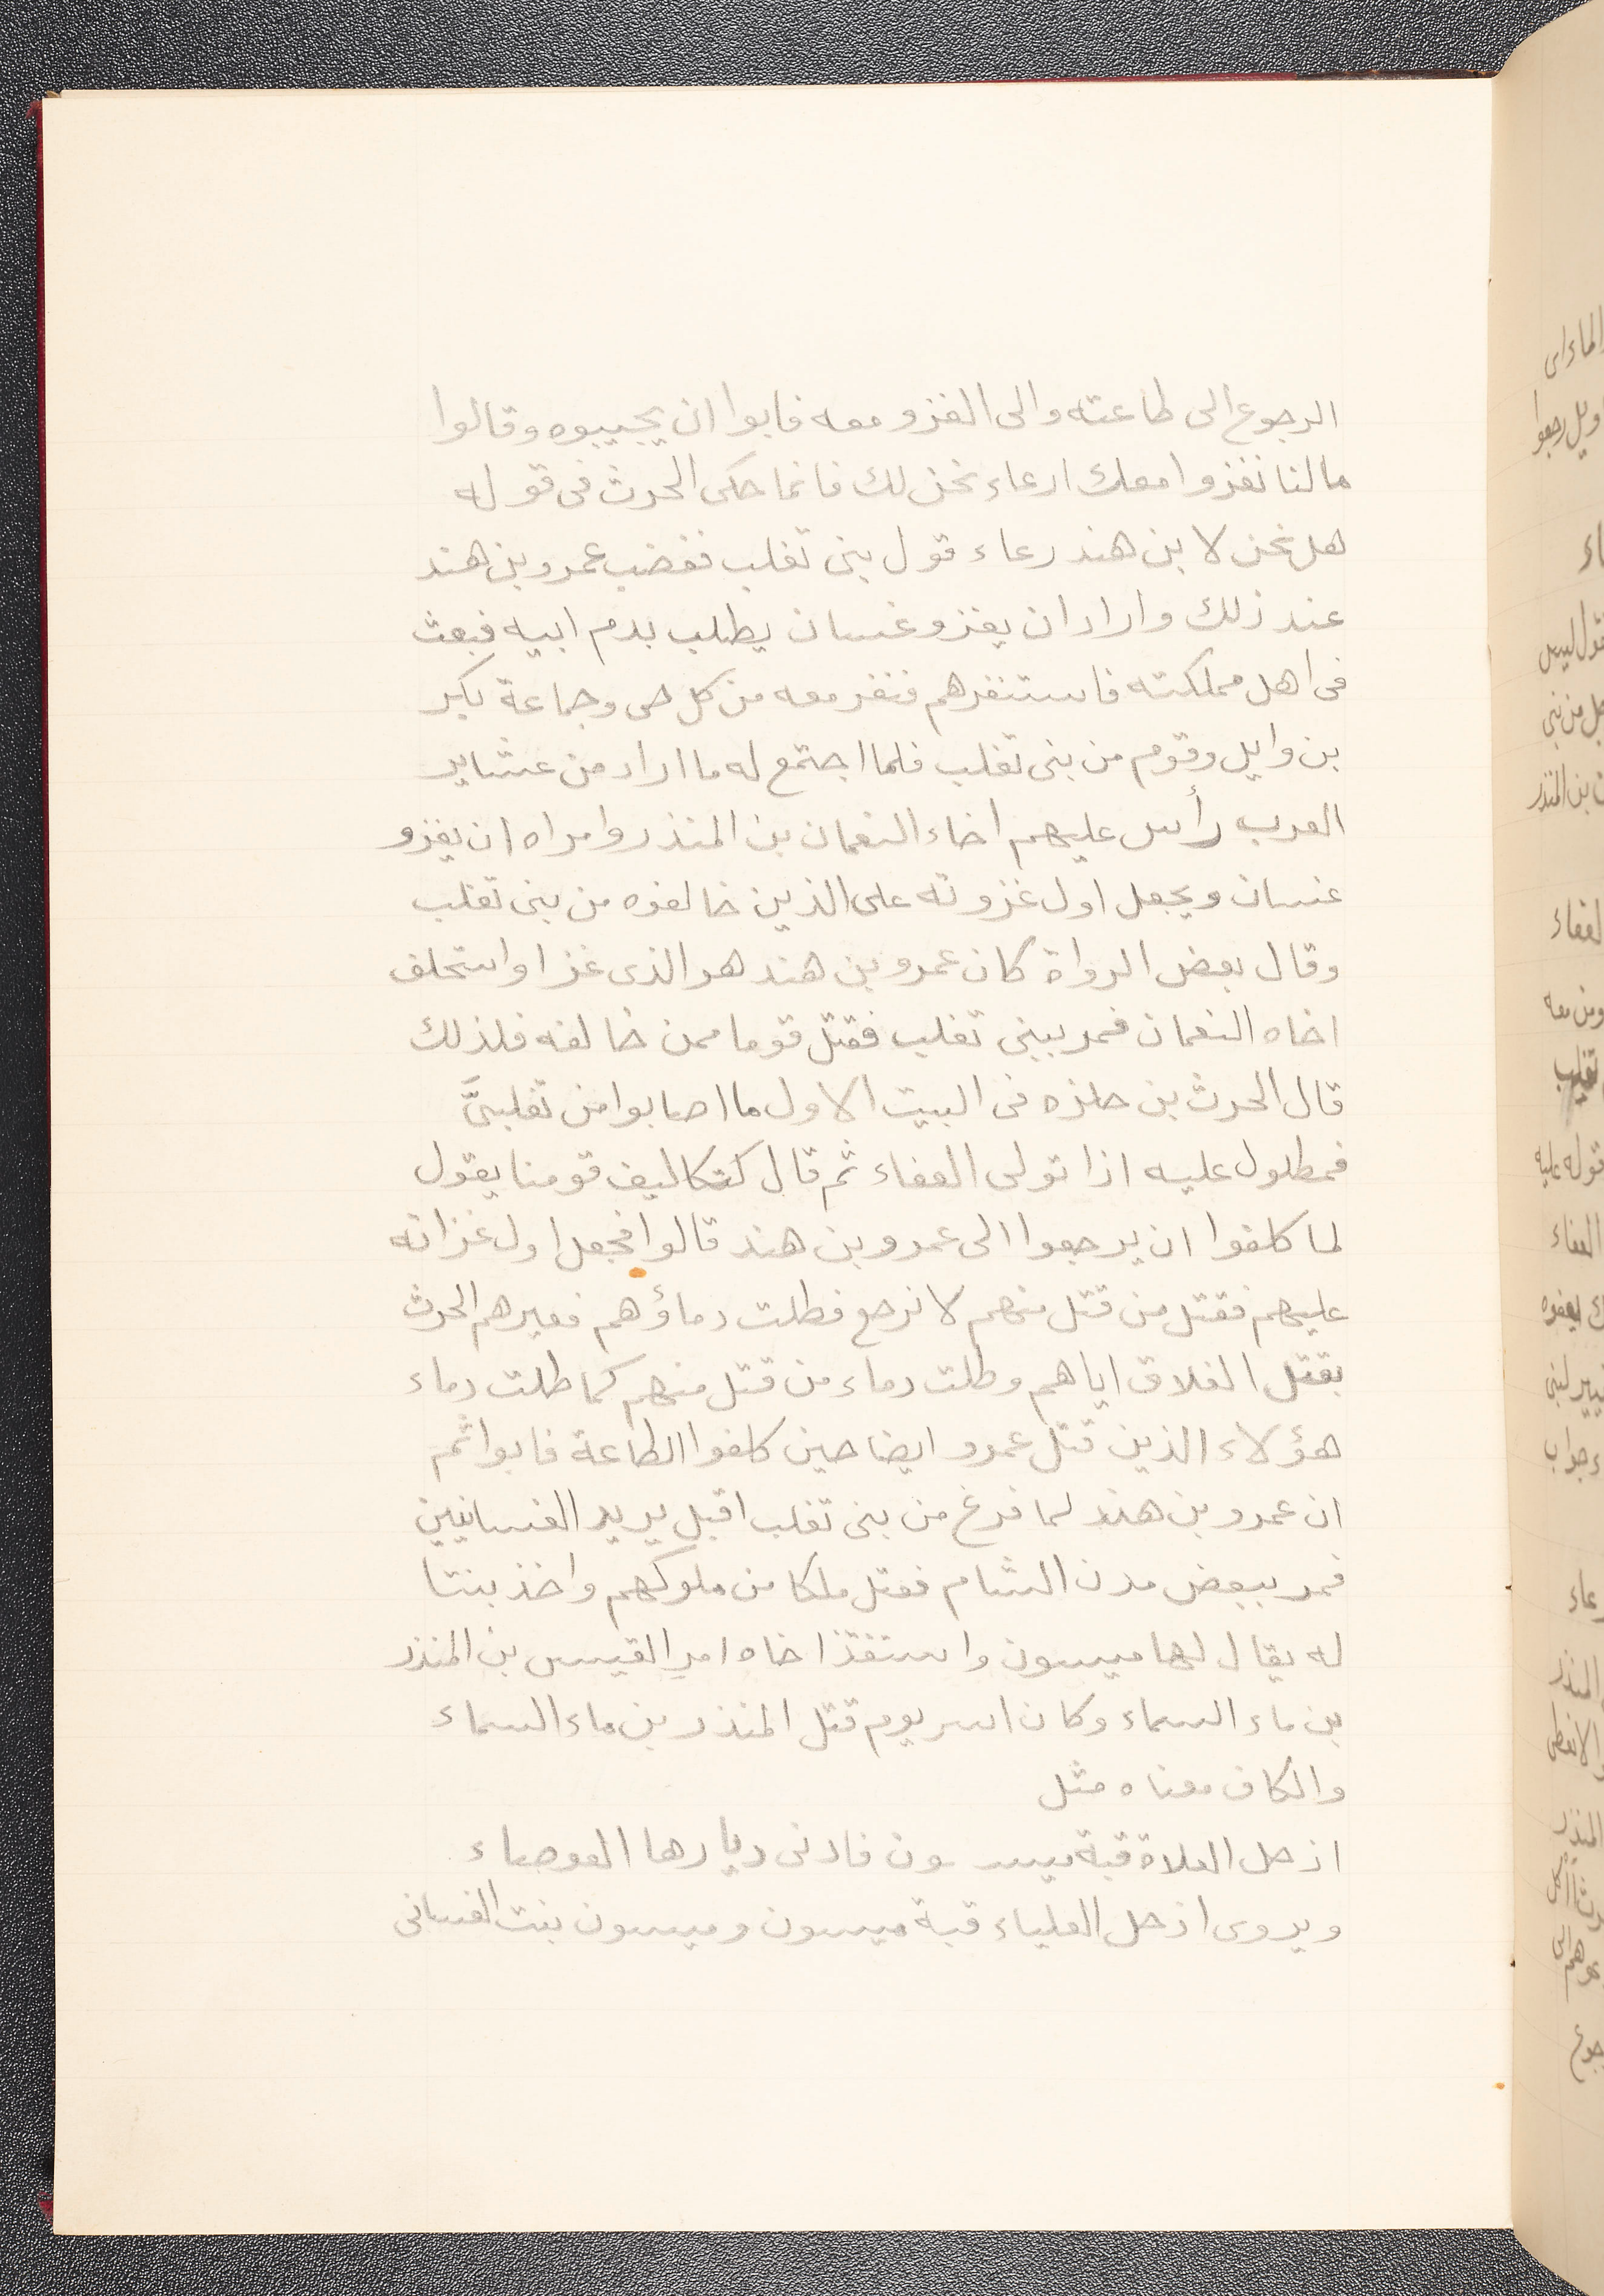 الرجوع الى طاعته والى الغزو معه فابوا ان يجيبوه وقالوا
مالنا نغزوا معك ارعاء نحن لك فانما حكى الحرث فى قوله
هل نحن لابن هند رعاء قول بنى تغلب فغضب عمرو بن هند
عند ذلك واراد ان يغزو غسان يطلب بدم ابيه فبعث
فى اهل مملكته فاستنفرهم فنفر معه من كل حى وجماعة بكر
بن وايل وقوم من بنى تغلب فلما اجتمع له ما اراد من عشاير
العرب رأس عليهم اخاء النعمان بن المنذر وامراه ان يغزو
غسان ويجعل اول غزوته على الذين خالفوه من بنى تغلب
وقال بعض الرواة كان عمرو بن هند هو الذى غزا واستخلف
اخاه النعمان فمر ببنى تغلب فقتل قوما ممن خالفه فلذلك
قال الحرث بن حلزه فى البيت الاول ما اصابوا من تغلبىَّ
فمطلول عليه اذا تولى العفاء ثم قال كتكاليف قومنا يقول
لما كلفوا ان يرجعوا الى عمرو بن هند قالوا فجعل اول غزاته
عليهم فقتل من قتل منهم لا نرجع فطلت دماؤهم فعيرهم الحرث
بقتل الغلاق اياهم وطلت دماء من قتل منهم كما طلت دماء
هؤلاء الذين قتل عمرو ايضا حين كلفوا الطاعة فابوا ثم
ان عمرو بن هند لما فرغ من بنى تغلب اقبل يريد الغسانيين
فمر ببعض مدن الشام فقتل ملكا من ملوكهم واخذ بنتا
له يقال لها ميسون واستنقذ اخاه امر القيس بن المنذر
بن ماء السماء وكان اسر يوم قتل المنذر بن ماء السماء
والكاف معناه مثل
اذ حل العلاة قبة ميسون فادنى ديارها العوصاء
ويروى اذ حل العلياء قبة ميسون وميسون بنت الغسانى